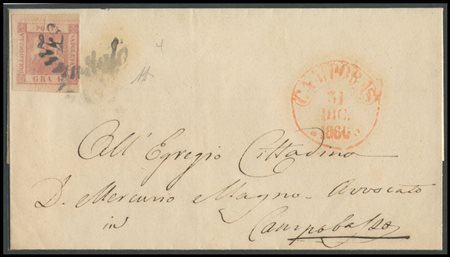 GRA
31
DIC.
All' Egregio Cittadino
D. Mercurio Magno - Avvocato
in
Campobasso